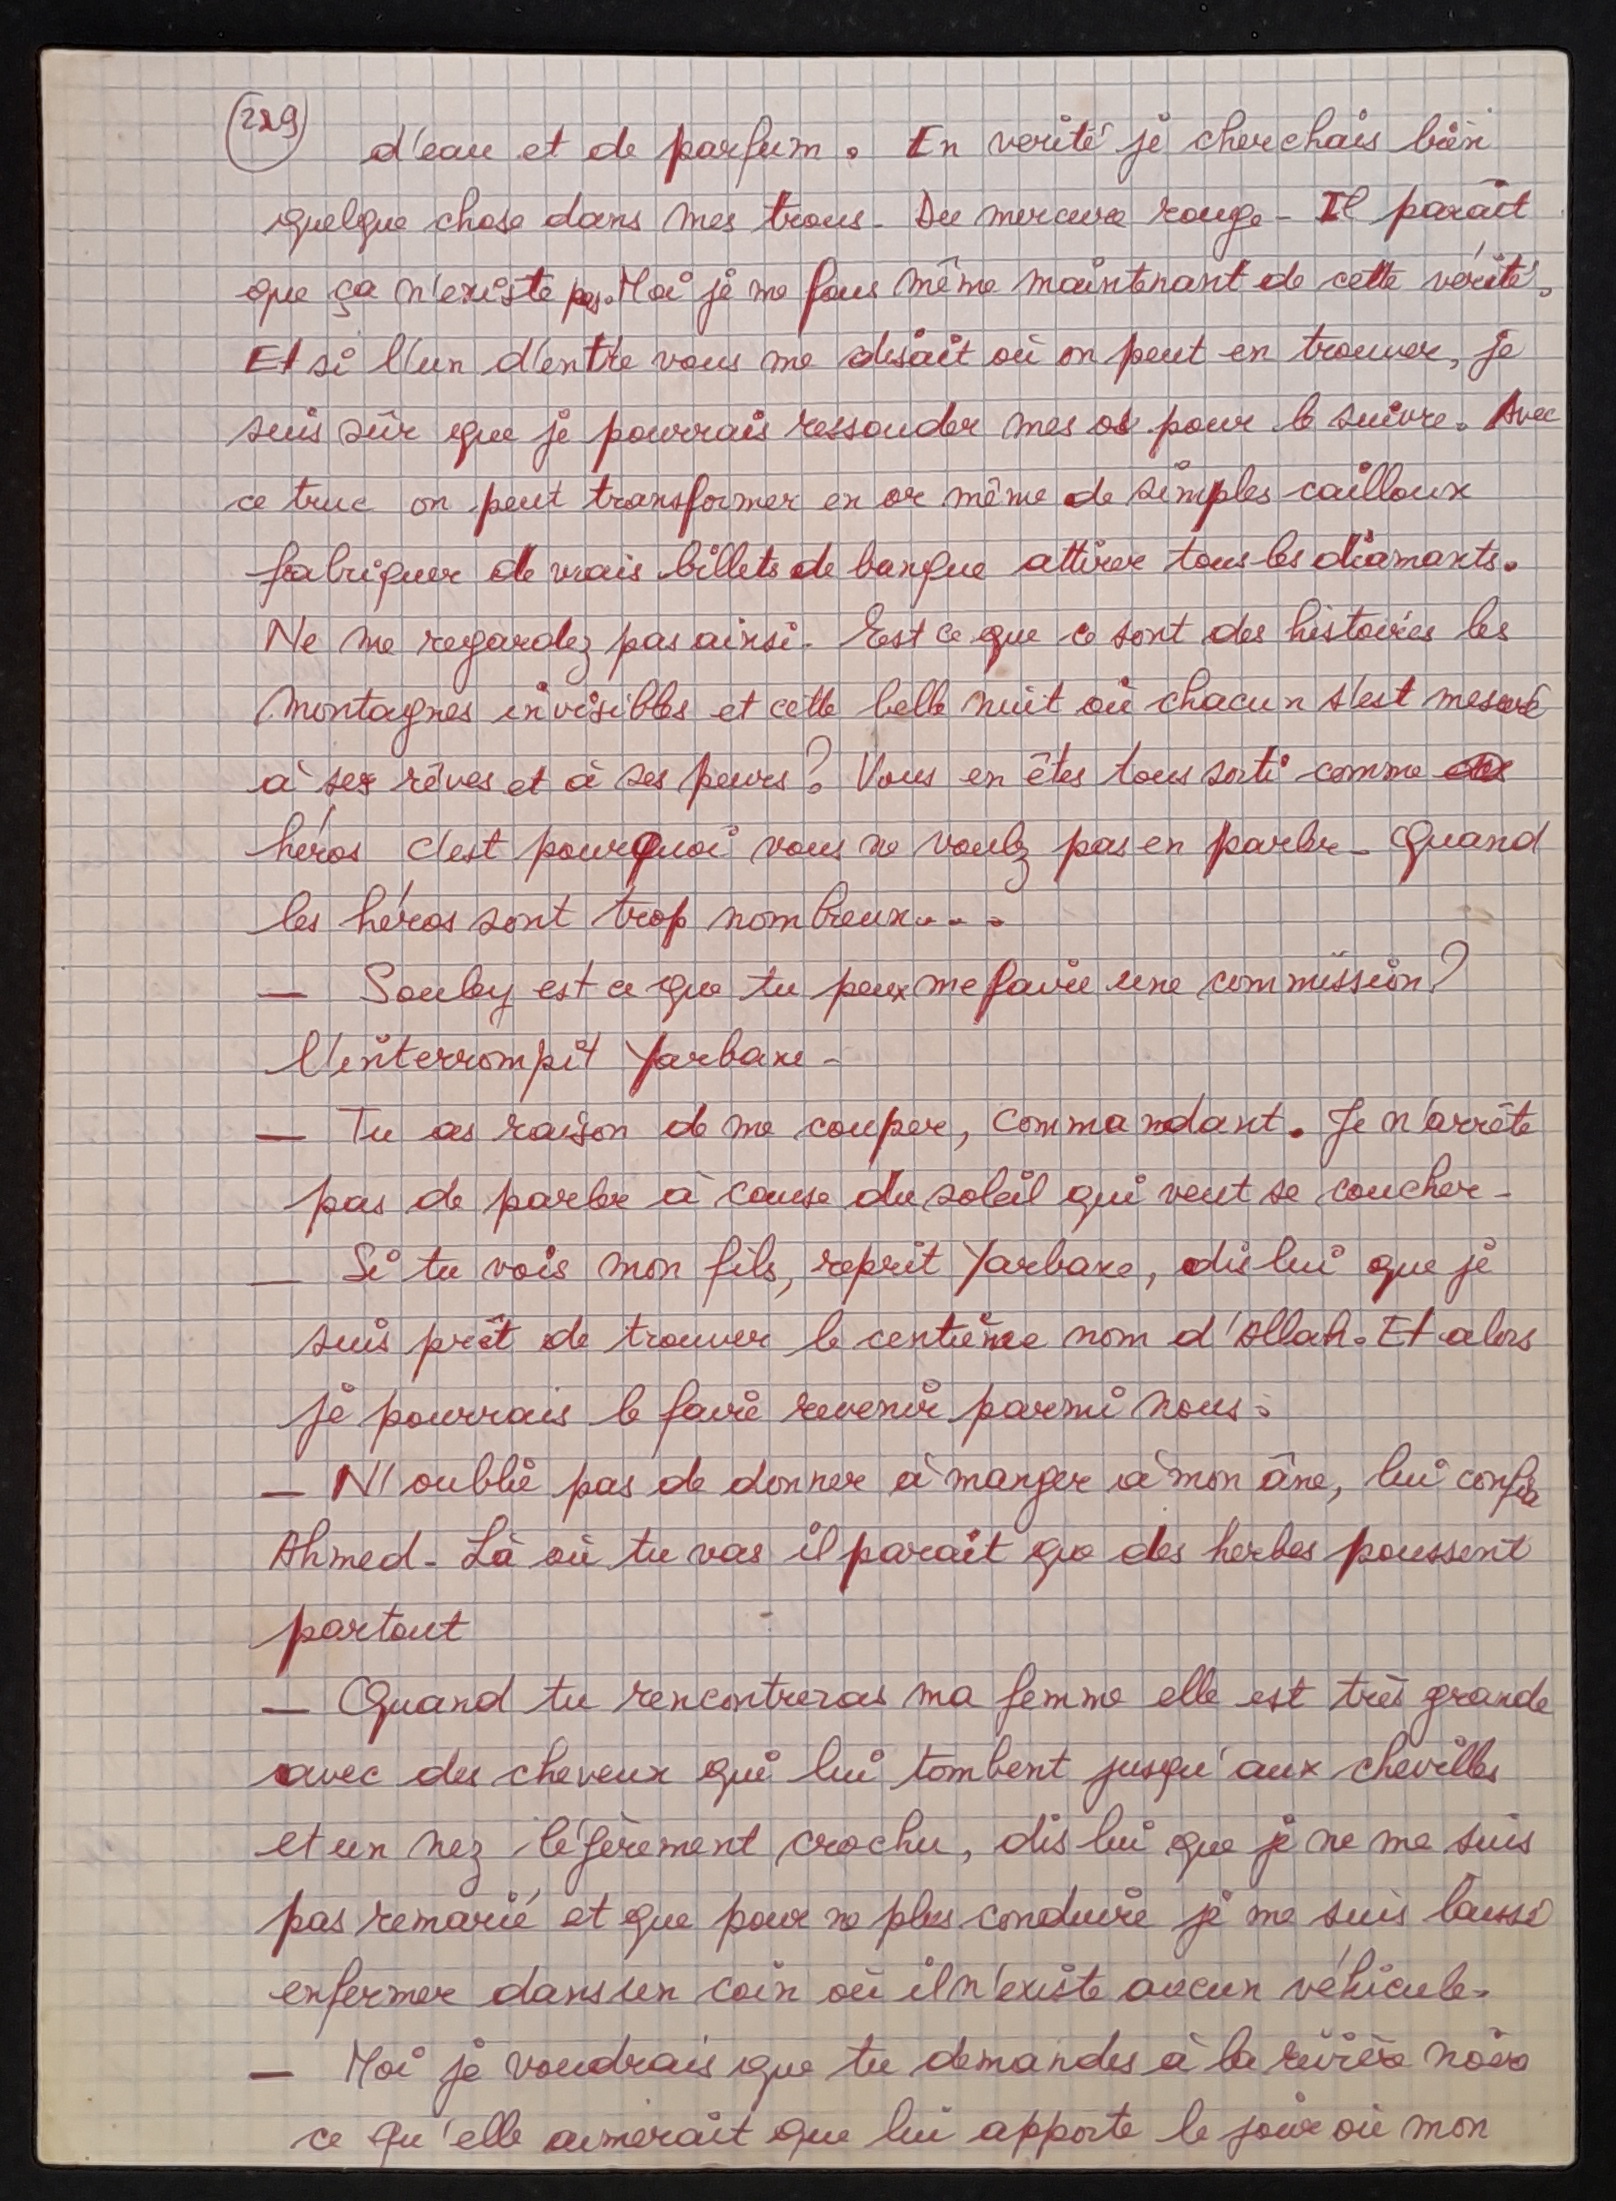 229
d'eau et de parfum. En verité je cherchais bien
quelque chose dans mes trous. Du mercure rouge. Il paraît
que ça n'existe pas. Moi je me fous même maintenant de cette vérité.
Et si l'un d'entre vous me disait où on peut en trouver, je
suis sûr que je pourrais ressouder mes os pour le suivre. Avec
ce truc on peut transformer en or même de simples cailloux
fabriquer de vrais billets de banque attirer tous les diamants.
Ne me regardez pas ainsi. Est ce que ce sont des histoires les
montagnes invisibles et cette belle nuit où chacun s'est mesuré
à ses rêves et à ses peurs ? Vous en êtes tous sorti comme
héros c'est pourquoi vous ne voulez pas en parler. Quand
les héros sont trop nombreux...
— Souley est ce que tu peux me faire une commission ?
l'interrompit Yarbane.
— Tu as raison de me couper, Commandant. Je n'arrête
pas de parler à cause du soleil qui veut se coucher.
— Si tu vois mon fils, reprit Yarbane, dis lui que je
suis prêt de trouver le centième nom d'Allah. Et alors
je pourrais le faire revenir parmi nous.
— N'oublie pas de donner à manger à mon âne, lui confia
Ahmed. Là où tu vas il parait que des herbes poussent
partout
— Quand tu rencontreras ma femme elle est très grande
avec des cheveux qui lui tombent jusqu'aux chevilles
et un nez légèrement crochu, dis lui que je ne me suis
pas remarié et que pour ne plus conduire je me suis laissé
enfermer dans un coin où il n'existe aucun véhicule.
— Moi je voudrais que tu demandes à la rivière noire
ce qu'elle aimerait que lui apporte le jour où mon